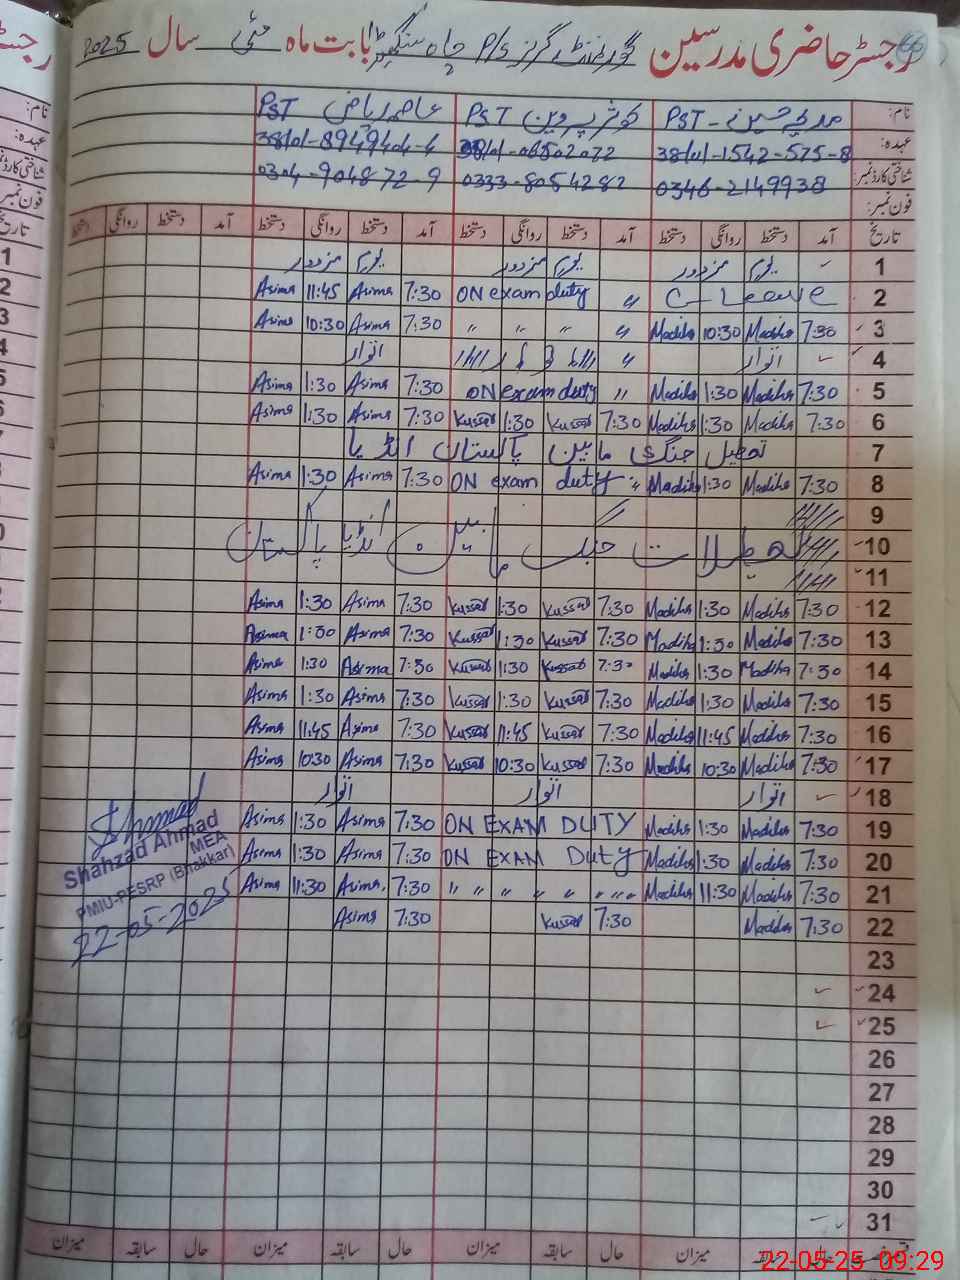 رجسٹر حاضری مدرسین گورنمنٹ گرلز P/S چاہ بابت ماہ مئی سال 2025
نام: مدیحہ حسین PST - کوثر پروین PST عاصمہ ریاض PST
عہدہ:
شناختی کارڈ نمبر: 38101-1542-575-8
فون نمبر: 0346-2149938 0333-8054282 0304-904872-9
تاریخ آمد دستخط روانگی دستخط آمد دستخط روانگی دستخط آمد دستخط روانگی دستخط آمد دستخط روانگی دستخط
1 یوم مزدور یوم مزدور یوم مزدور
2 C Leave " ON exam duty 7:30 Asima 11:45 Asima
3 7:30 Madiha 10:30 Madiha " " " " 7:30 Asima 10:30 Asima
4 اتوار " اتوار
5 7:30 Madiha 1:30 Madiha " ON exam duty 7:30 Asima 1:30 Asima
6 7:30 Madiha 1:30 Madiha 7:30 Kussar 1:30 Kussar 7:30 Asima 1:30 Asima
7 تعطیل جنگ مابین پاکستان انڈیا
8 7:30 Madiha 1:30 Madiha " ON exam duty 7:30 Asima 1:30 Asima
9
10 تعطیلات جنگ مابین انڈیا پاکستان
11
12 7:30 Madiha 1:30 Madiha 7:30 Kussar 1:30 Kussar 7:30 Asima 1:30 Asima
13 7:30 Madiha 1:30 Madiha 7:30 Kussar 1:30 Kussar 7:30 Asima 1:30 Asima
14 7:30 Madiha 1:30 Madiha 7:30 Kussar 1:30 Kussar 7:30 Asima 1:30 Asima
15 7:30 Madiha 1:30 Madiha 7:30 Kussar 1:30 Kussar 7:30 Asima 1:30 Asima
16 7:30 Madiha 11:45 Madiha 7:30 Kussar 11:45 Kussar 7:30 Asima 11:45 Asima
17 7:30 Madiha 10:30 Madiha 7:30 Kussar 10:30 Kussar 7:30 Asima 10:30 Asima
18 اتوار اتوار اتوار
19 7:30 Madiha 1:30 Madiha ON EXAM DUTY 7:30 Asima 1:30 Asima
20 7:30 Madiha 1:30 Madiha ON EXAM Duty 7:30 Asima 1:30 Asima
21 7:30 Madiha 11:30 Madiha " " " " " " " 7:30 Asima 11:30 Asima
22 7:30 Madiha 7:30 Kussar 7:30 Asima
23
24
25
26
27
28
29
30
31
حال سابقہ میزان حال سابقہ میزان حال سابقہ میزان حال سابقہ میزان
Shahzad Ahmad
MEA
PMIU-PESRP (Bhakkar)
22-05-2025
22-05-25 09:29